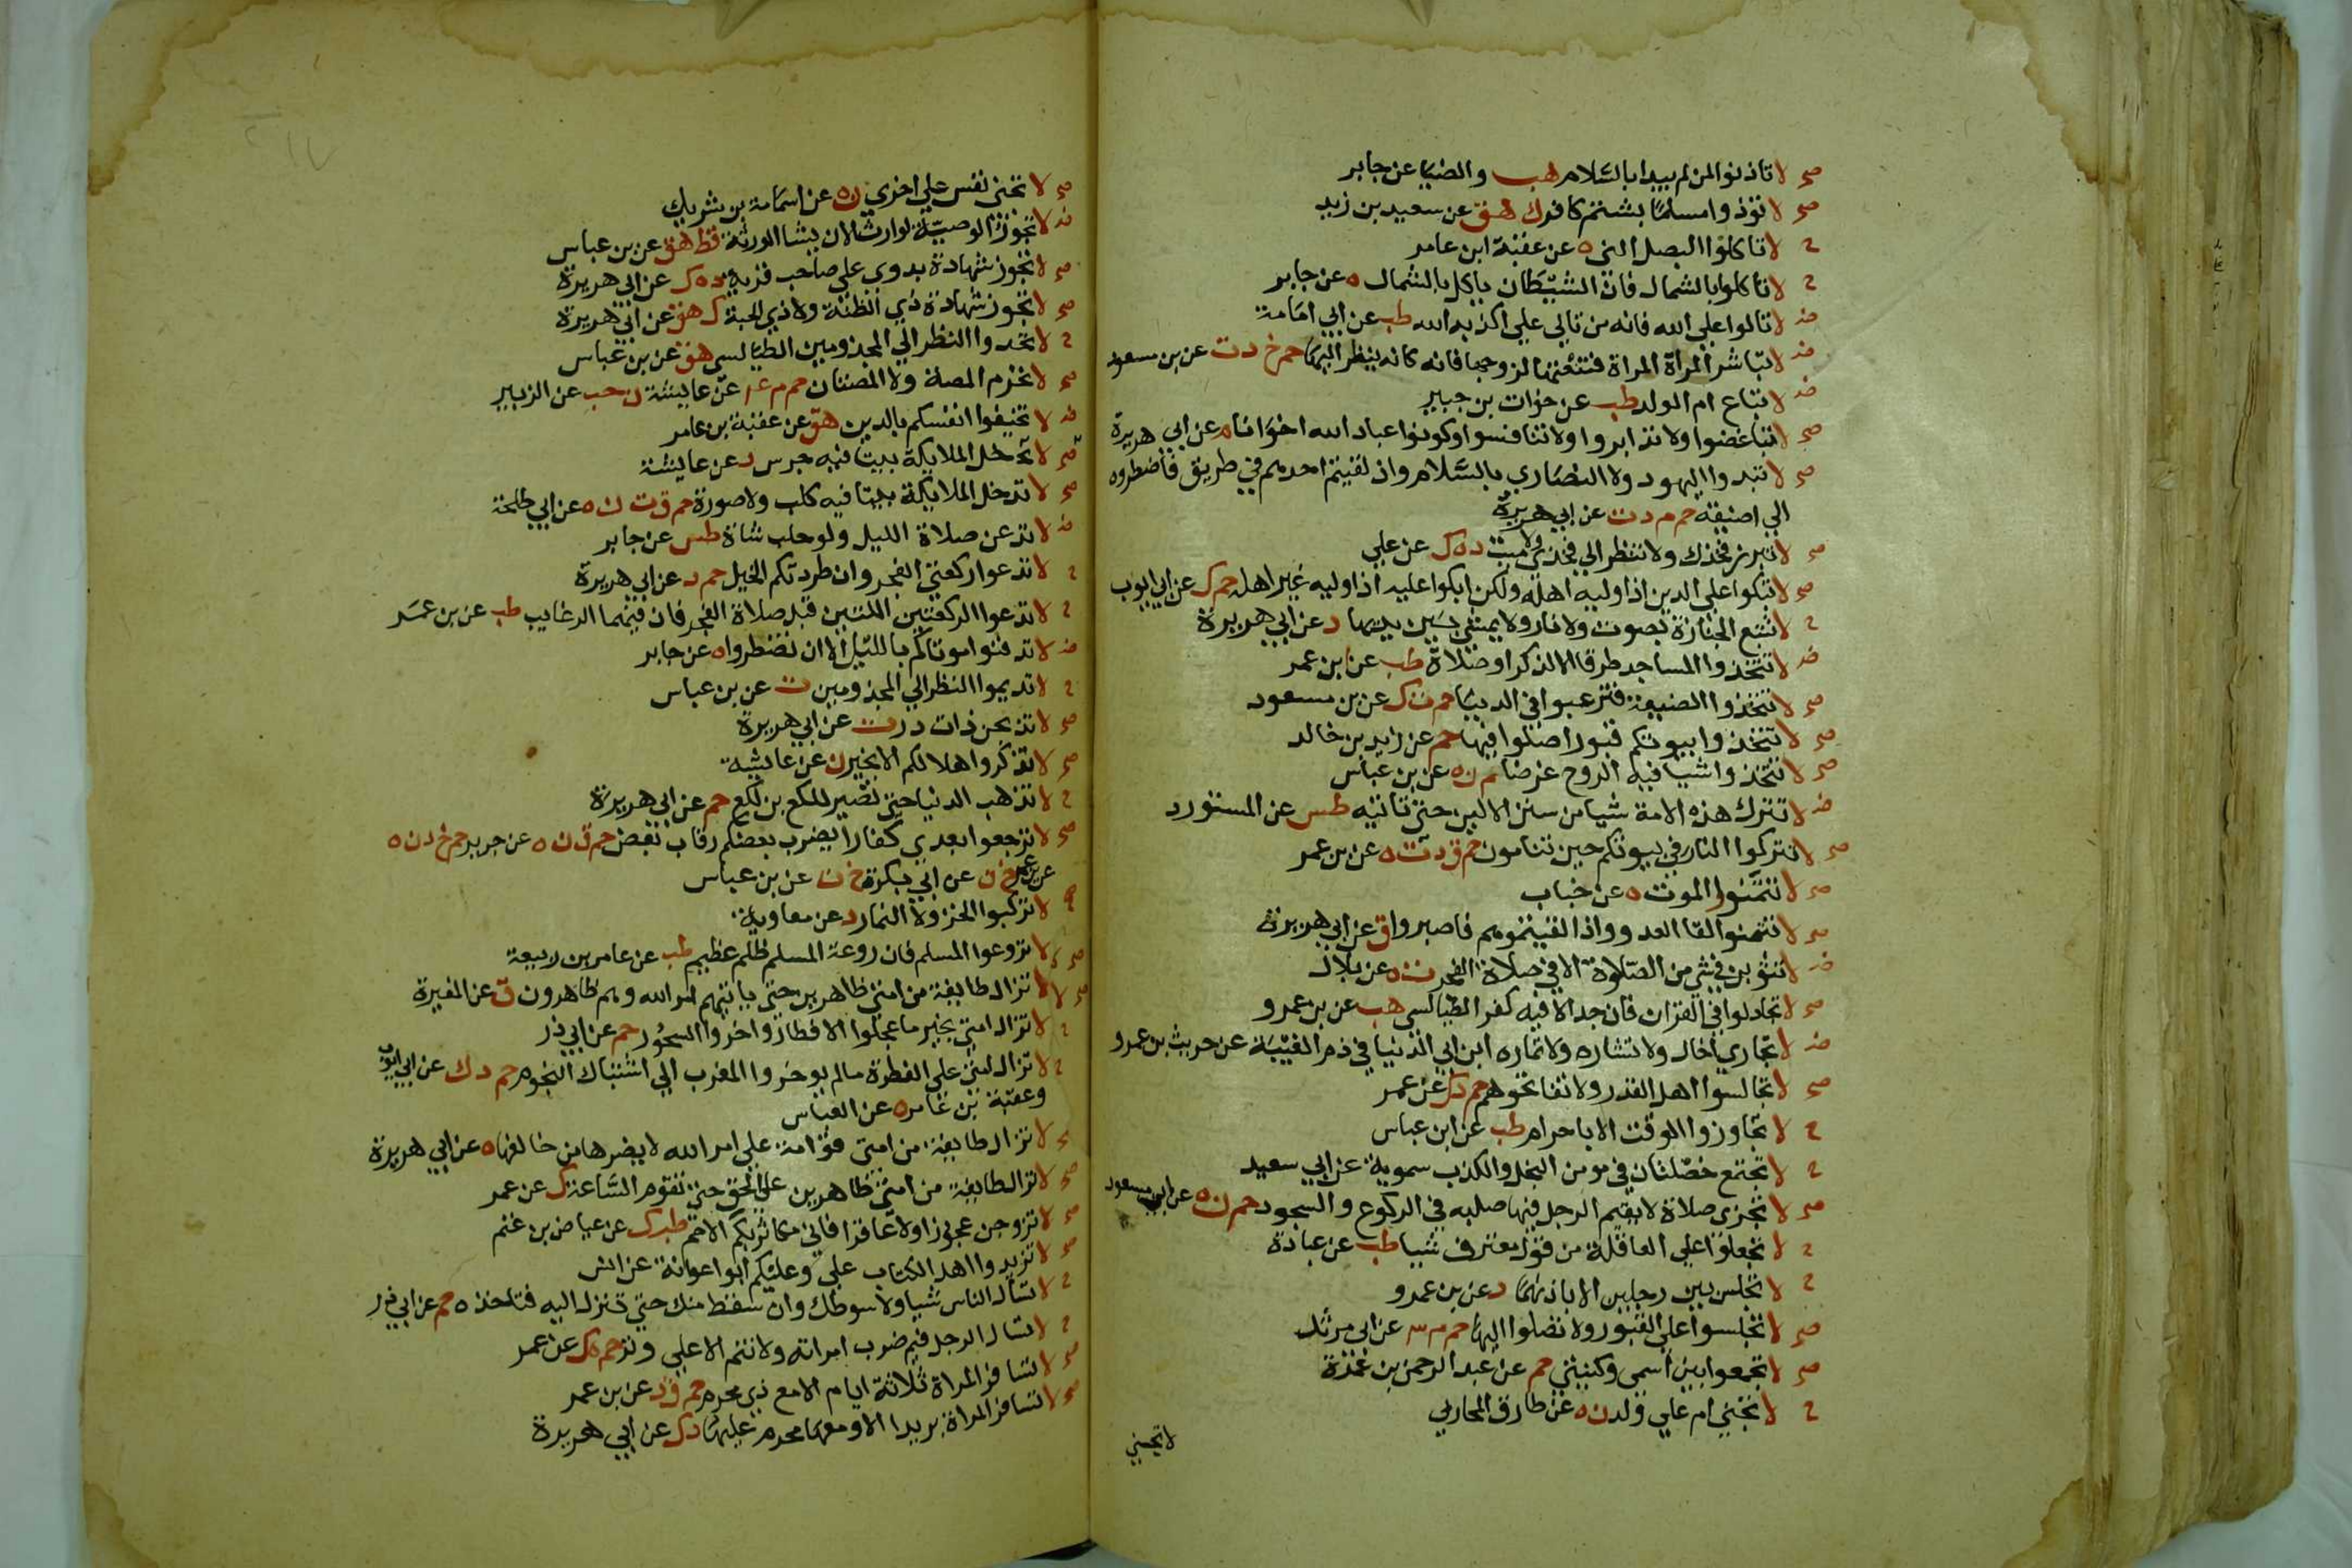 صح لا تاذنوا لمن لم يبدا بالسلام هب والضيا عن جابر
صح لا توذوا مسلما بشتم كافر ك هق عن سعيد بن زيد
ح لا تاكلوا البصل الني ه عن عقبة ابن عامر
ح لا تاكلوا بالشمال فان الشيطان ياكل بالشمال ه عن جابر
ض لا تالوا علي الله فانه من تالي علي الله اكذبه الله طب عن ابي امامة
ض لا تباشر المراة المراة فتنعتها لزوجها فانه كانه ينظر اليها حم خ د ت عن بن مسعود
ض لا تباع ام الولد طب عن خوات بن جبير
صح لا تباغضوا ولا تدابروا ولا تنافسوا وكونوا عباد الله اخوانا م عن ابي هريرة
صح لا تبدوا اليهود ولا النصاري بالسلام واذ لقيتم احدهم في طريق فاضطروه
الي اضيقه حم م د ت عن ابي هريرة
صح لا تبرز فخذك ولا تنظر الي فخذ حي ولا ميت د ه ك عن علي
صح لا تبكوا علي الدين اذا وليه اهله ولكن ابكوا عليه اذا وليه غير اهله حم ك عن ابي ايوب
ح لا تتبع الجنازة بصوت ولا نار ولا يمشي بين يديها د عن ابي هريرة
ض لا تتخذوا المساجد طرقا الا لذكر او صلاة طب عن ابن عمر
صح لا تتخذوا الضيعة فترغبوا في الدنيا حم ت ك عن بن مسعود
صح لا تتخذوا بيوتكم قبورا صلوا فيها حم عن زيد بن خالد
صح لا تتخذوا شيا فيه الروح غرضا م ن ه عن بن عباس
ض لا تترك هذه الامة شيا من سنن الاولين حتي تاتيه طس عن المستورد
صح لا تتركوا النار في بيوتكم حين تنامون حم ق د ت ه عن بن عمر
صح لا تتمنوا الموت ه عن خباب
صح لا تتمنوا لقا العدو واذا لقيتموهم فاصبروا ق عن ابي هريرة
ض لا تثوبن في شي من الصلوة الا في صلاة الفجر ت ه عن بلال
صح لا تجادلوا في القران فان جدالا فيه كفر الطيالسي هب عن بن عمرو
ض لا تجاري اخاك ولا تشاره ولا تماره ابن ابي الدنيا في ذم الغيبة عن حريث بن عمرو
صح لا تجالسوا اهل القدر ولا تفاتحوهم حم د ك عن عمر
ح لا تجاوزوا الوقت الا باحرام طب عن ابن عباس
ح لا تجتمع خصلتان في مومن البخل والكذب سموية عن ابي سعيد
صح لا تجزي صلاة لا يقيم الرجل فيها صلبه في الركوع والسجود حم ن ه عن ابي مسعود
ح لا تجعلوا علي العاقلة من قول معترف شيا طب عن عبادة
ح لا تجلس بين رجلين الا باذنهما د عن بن عمرو
صح لا تجلسوا علي القبور ولا تصلوا اليها حم م عن ابي مرثد
صح لا تجمعوا بين اسمي وكنيتي حم عن عبد الرحمن بن عمرة
ح لا تجني ام علي ولد ن ه عن طارق المحاربي
لا تجني
صح لا تجني نفس علي اخري ن ه عن اسامة بن شريك
ض لا تجوز الوصية لوارث الا ان يشا الورثة قط هق عن بن عباس
صح لا تجوز شهادة بدوي علي صاحب قرية د ه ك عن ابي هريرة
صح لا تجوز شهادة ذي الظنة ولا ذي الحنة ك هق عن ابي هريرة
ح لا تحدوا النظر الي المجذومين الطيالسي هق عن بن عباس
صح لا تحرم المصة ولا المصتان حم م ع عن عايشة ن حب عن الزبير
ض لا تخيفوا انفسكم بالدين هق عن عقبة بن عامر
صح لا تدخل الملايكة بيتا فيه جرس د عن عايشة
صح لا تدخل الملايكة بيتا فيه كلب ولا صورة حم ق ت ن ه عن ابي طلحة
ض لا تدعن صلاة الليل ولو حلب شاة طس عن جابر
ح لا تدعوا ركعتي الفجر وان طردتكم الخيل حم د عن ابي هريرة
ح لا تدعوا الركعتين اللتين قبل صلاة الفجر فان فيهما الرغايب طب عن بن عمر
ض لا تدفنوا موتاكم بالليل الا ان تضطروا ه عن جابر
ح لا تديموا النظر الي المجذومين ت عن بن عباس
صح لا تذبحن ذات در ت عن ابي هريرة
صح لا تذكروا هلاككم الا بخير ن عن عايشة
ح لا تذهب الدنيا حتي تصير للكع بن لكع حم عن ابي هريرة
صح لا ترجعوا بعدي كفارا يضرب بعضكم رقاب بعض حم ق ن ه عن جرير حم خ د ن ه
عن بن عمر خ ن عن ابي بكرة خ ت عن بن عباس
ح لا تركبوا الخز ولا النمار د عن معاوية
صح لا تروعوا المسلم فان روعة المسلم ظلم عظيم طب عن عامر بن ربيعة
صح لا تزال طايفة من امتي ظاهرين حتي ياتيهم امر الله وهم ظاهرون ق عن المغيرة
ح لا تزال امتي بخير ما عجلوا الافطار واخروا السحور حم عن ابي ذر
ح لا تزال امتي علي الفطرة مالم يوخروا المغرب الي اشتباك النجوم حم د ك عن ابي ايوب
وعقبة بن عامر ه عن العباس
ح لا تزال طايفة من امتي قوامة علي امر الله لا يضرها من خالفها ه عن ابي هريرة
صح لا تزال طايفة من امتي ظاهرين علي الحق حتي تقوم الساعة ك عن عمر
صح لا تزوجن عجوزا ولا عاقرا فاني مكاثر بكم الامم طب ك عن عياض بن غنم
صح لا تزيدوا اهل الكتاب علي وعليكم ابو اعوانة عن انس
ح لا تسال الناس شيا ولا سوطك وان سقط منك حتي تنزل اليه فتاخذه حم عن ابي ذر
ح لا تسال الرجل فيم ضرب امراته ولا تنم الا علي وتر حم ه ك عن عمر
صح لا تسافر المراة ثلاثة ايام الا مع ذي محرم حم ق د عن بن عمر
صح لا تسافر المراة بريدا الا ومعها محرم عليها د ك عن ابي هريرة